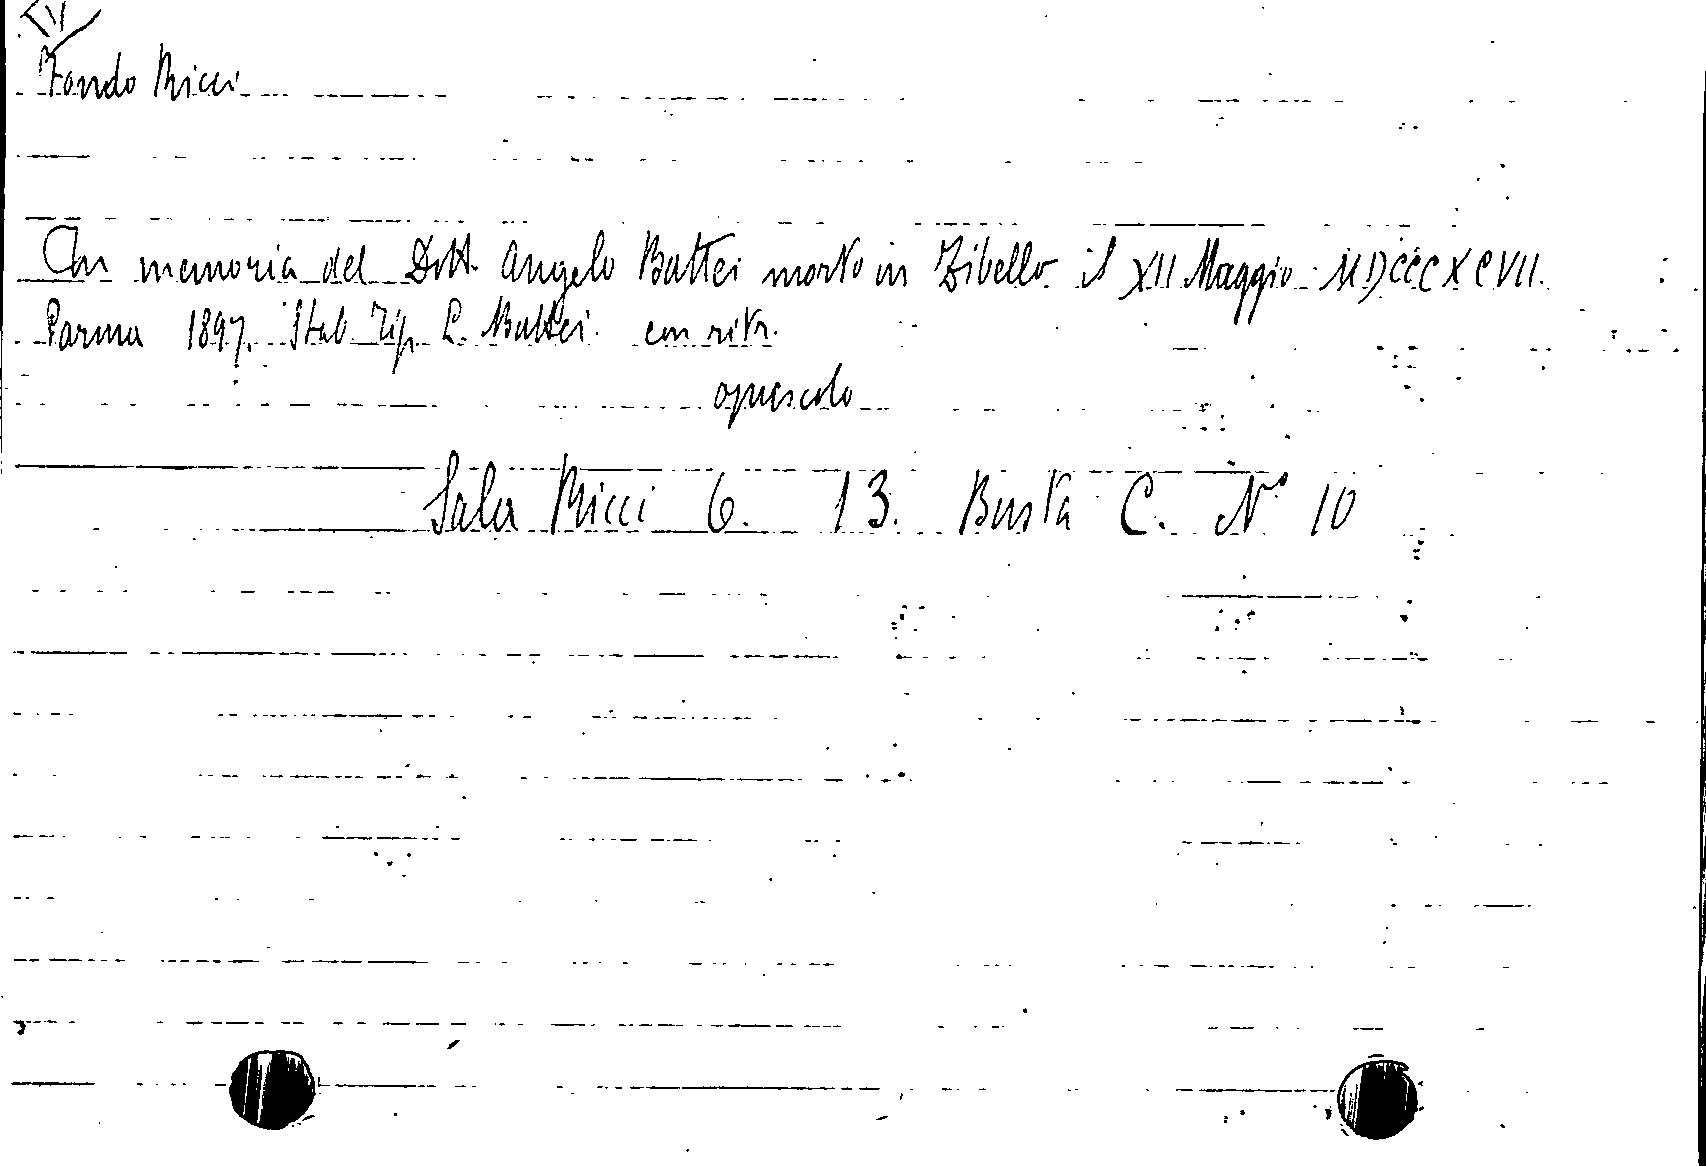 Fondo Ricci
In memoria del Dott. Angelo Battei morto in Zibello il XII Maggio MDCCCXCVII.
Parma 1897. Stab. Tip. L. Battei. con ritr.
opuscolo
Sala Ricci 6. 13. Busta C. N° 10